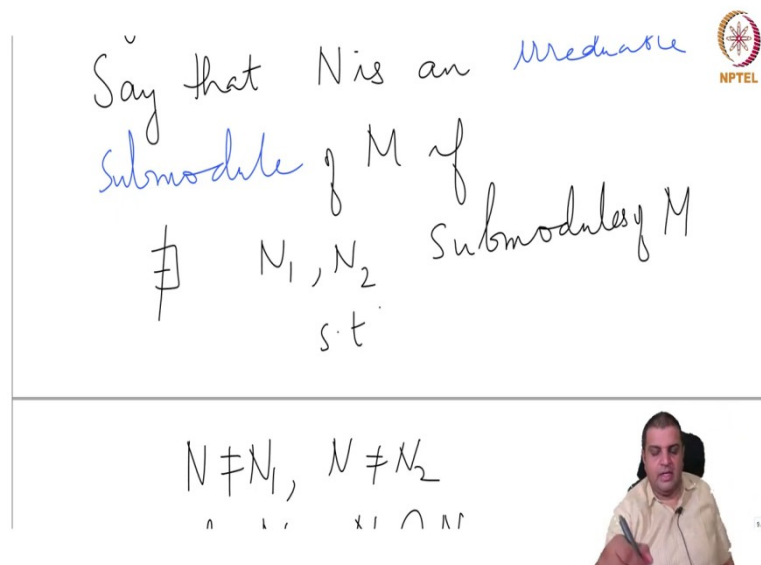 Say that N is an irreducible
NPTEL
submodule of M if
∄ N₁, N₂ submodules of M
s.t
N ≠ N₁, N ≠ N₂